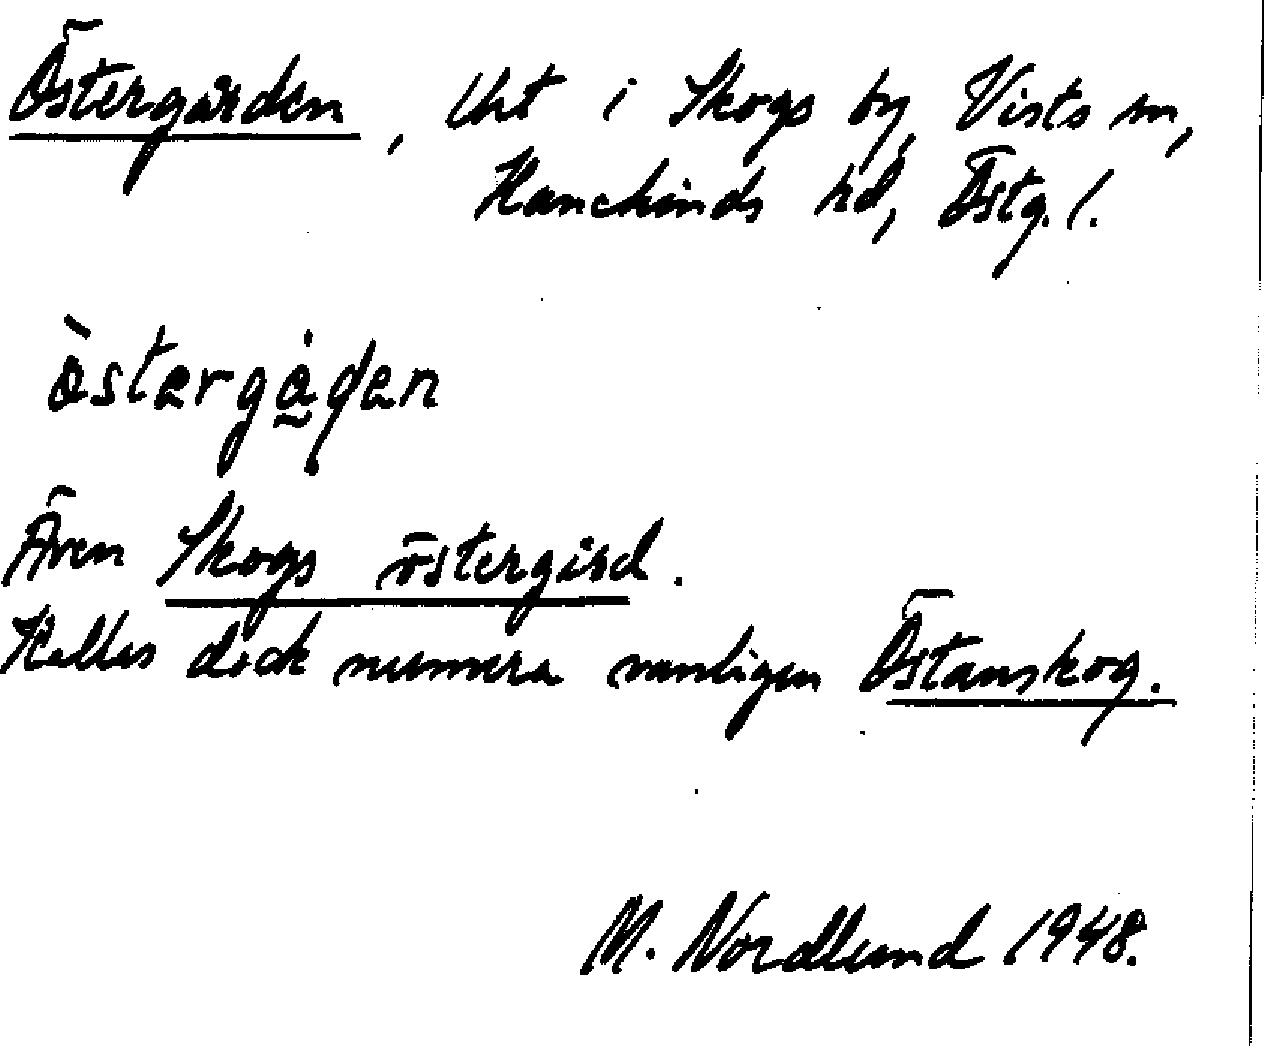 Östergården, Urt i Skogs by, Vists sn,
Hanekinds hd, Östg. l.
òstergå̰den
Även Skogs östergård.
Kallas dock numera vanligen Östanskog.
M. Nordlund 1948.